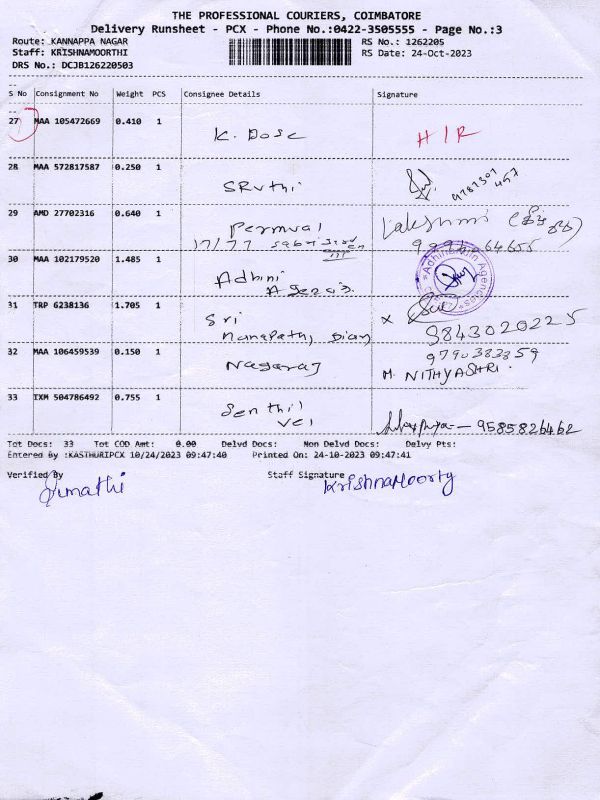 THE PROFESSIONAL COURIERS, COIMBATORE
Delivery Runsheet - PCX - Phone No.:0422-3505555 - Page No.:3
Route: KANNAPPA NAGAR
Staff: KRISHNAMOORTHI
DRS No.: DCJB126220503
RS No.: 1262205
RS Date: 24-Oct-2023
S No Consignment No Weight PCS Consignee Details Signature
27 MAA 105472669 0.410 1 K. Dose HIR
28 MAA 572817587 0.250 1 SRuthi
29 AMD 27702316 0.640 1 Perumal Lakshmi
17/77
30 MAA 102179520 1.485 1 Adhini
31 TRP 6238136 1.705 1 Sri x 9843020225
32 MAA 106459539 0.150 1 Nagaraj 9790383859
M. NITHYASHRI.
33 IXM 504786492 0.755 1 Senthil
Vel 9585826462
Tot Docs: 33 Tot COD Amt: 0.00 Delvd Docs: Non Delvd Docs: Delvy Pts:
Entered By :KASTHURIPCX 10/24/2023 09:47:40 Printed On: 24-10-2023 09:47:41
Verified By
Staff Signature
KrishnaMoorty